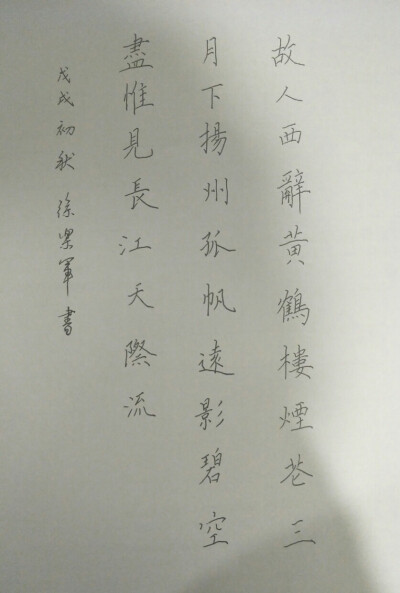 故人西辭黃鶴樓煙花三
月下揚州孤帆遠影碧空
盡惟見長江天際流
戊戌初秋 徐軍書